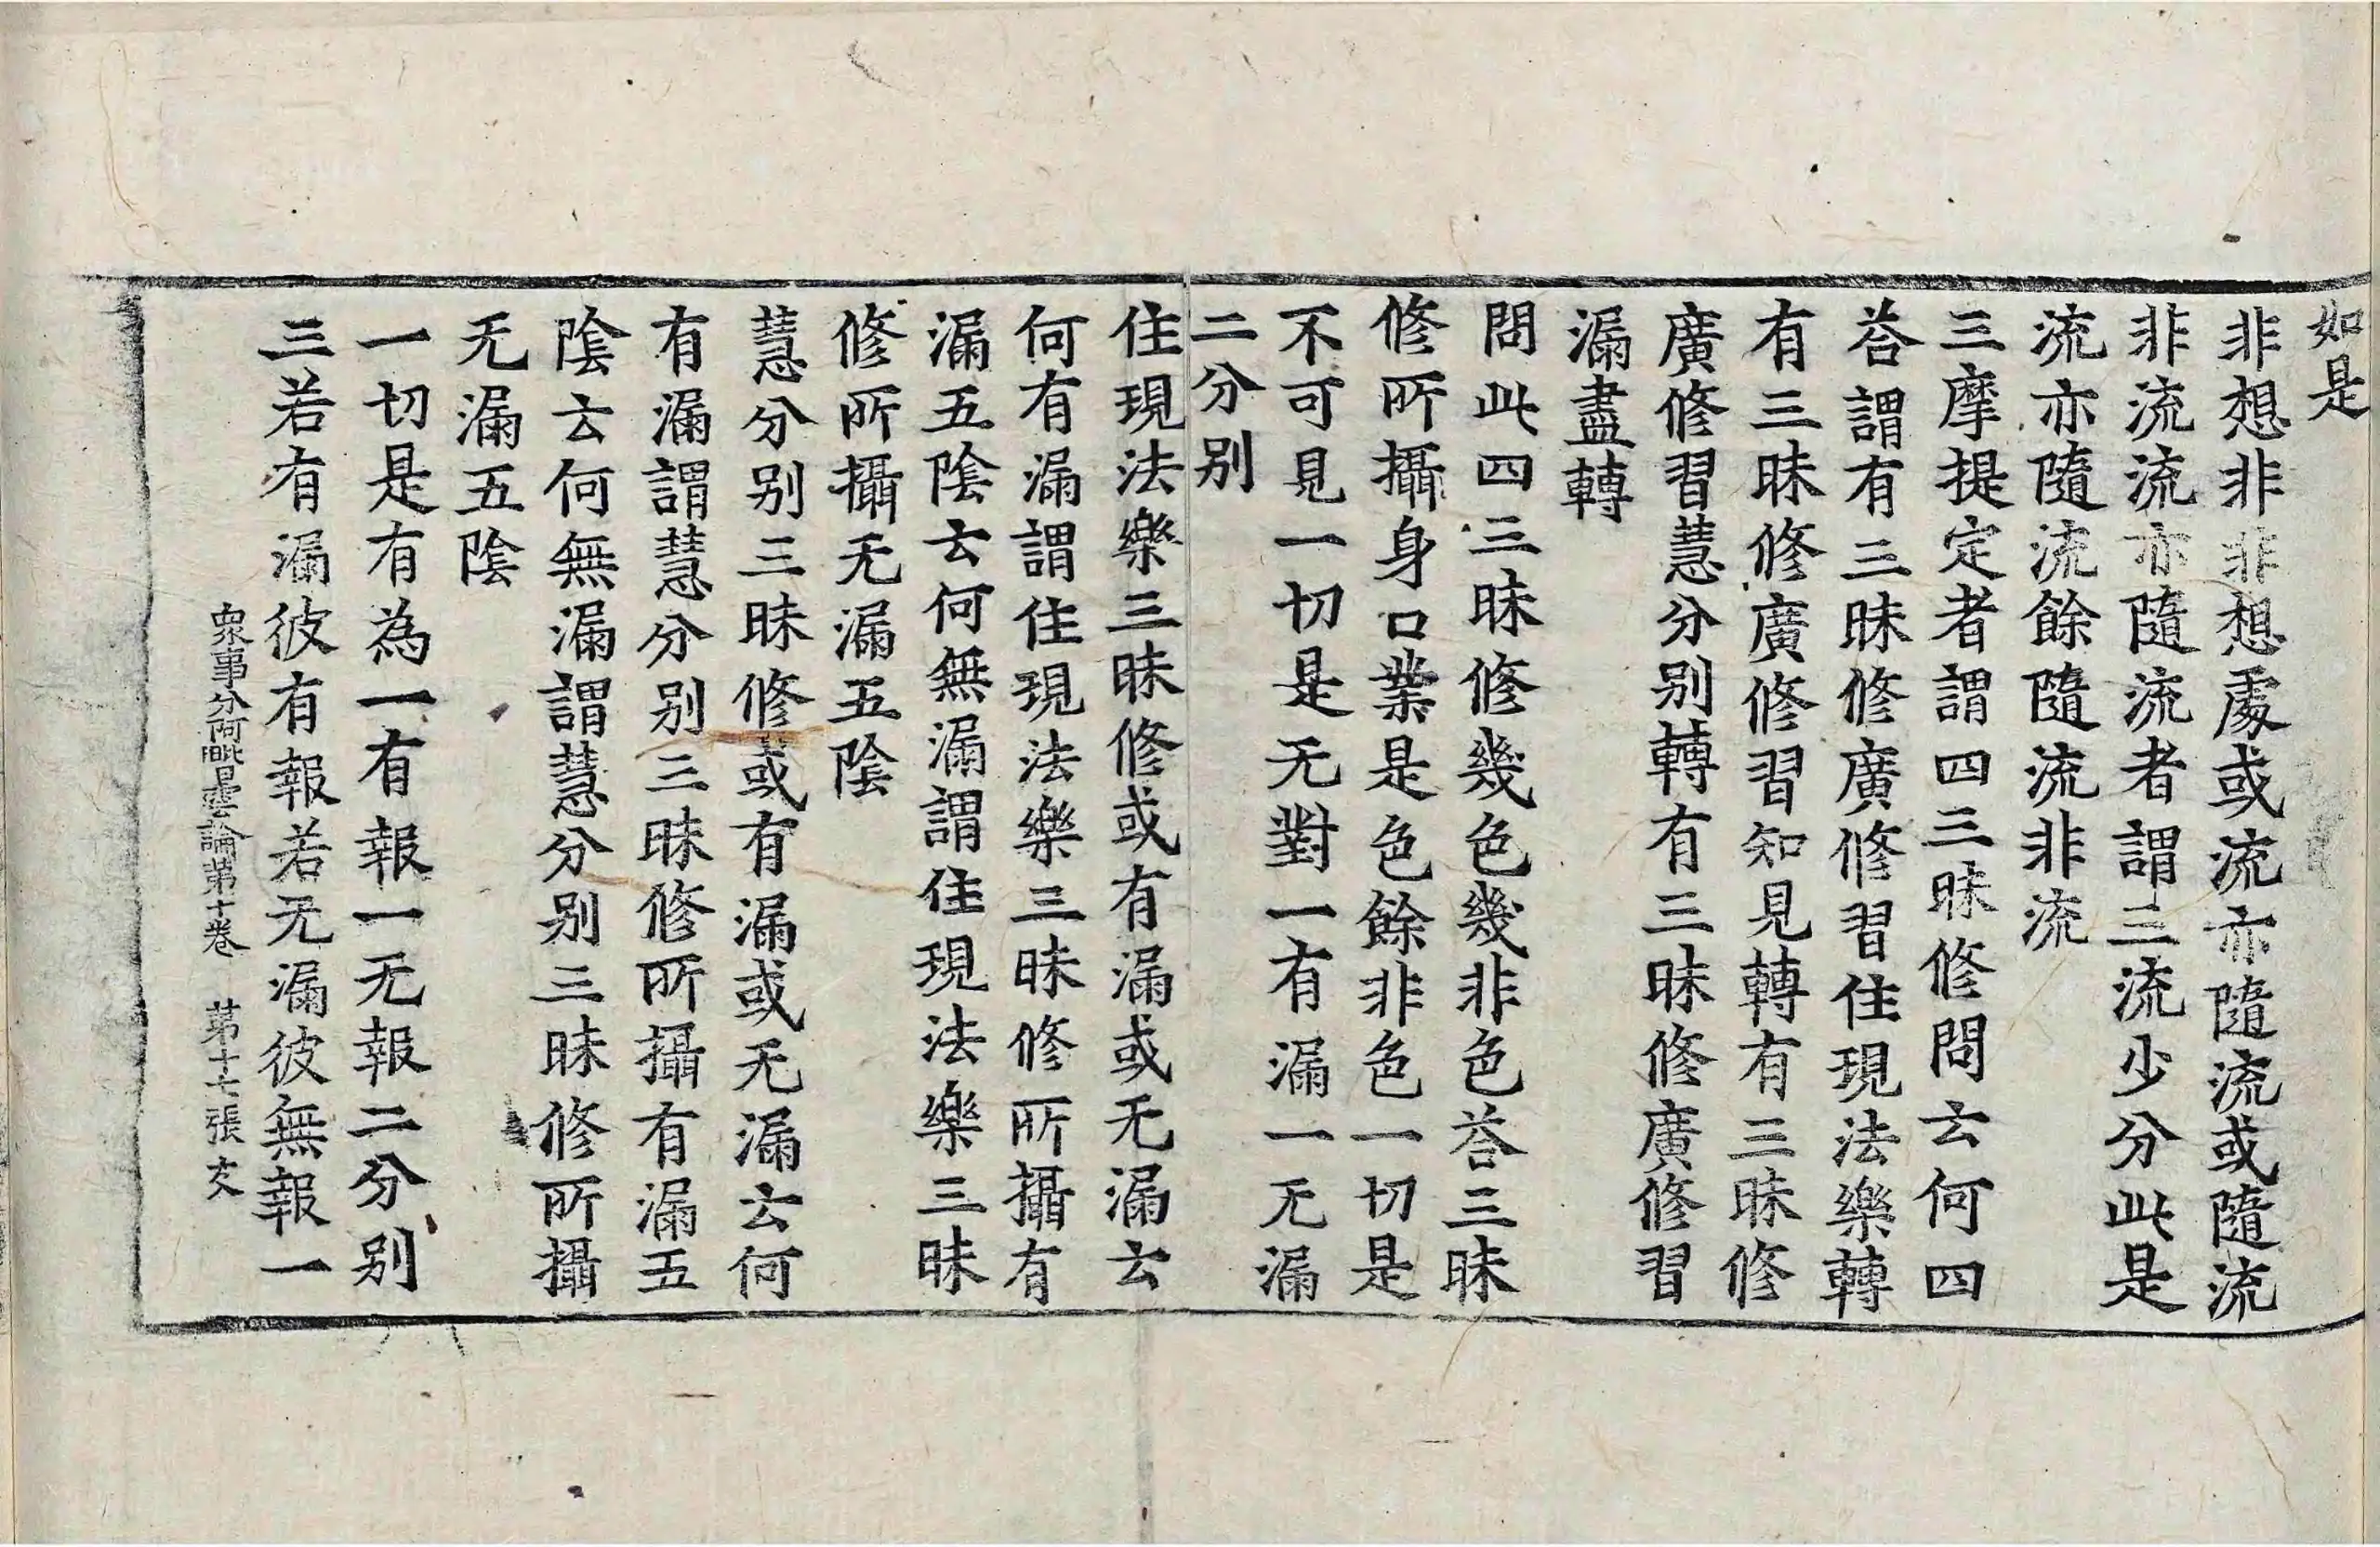 如是
非想非非想處或流亦隨流或隨流
非流流亦隨流者謂三流少分此是
流亦隨流餘隨流非流
三摩提定者謂四三昧修問云何四
荅謂有三昧修廣修習住現法樂轉
有三昧修廣修習知見轉有三昧修
廣修習慧分别轉有三昧修廣修習
漏盡轉
問此四三昧修幾色幾非色荅三昧
修所攝身口業是色餘非色一切是
不可見一切是无對一有漏一无漏
二分别
住現法樂三昧修或有漏或无漏云
何有漏謂住現法樂三昧修所攝有
漏五陰云何無漏謂住現法樂三昧
修所攝无漏五陰
慧分别三昧修或有漏或无漏云何
有漏謂慧分别三昧修所攝有漏五
陰云何無漏謂慧分别三昧修所攝
无漏五陰
一切是有為一有報一无報二分别
三若有漏彼有報若无漏彼無報一
衆事分阿毗曇論第十卷 苐十七張 文